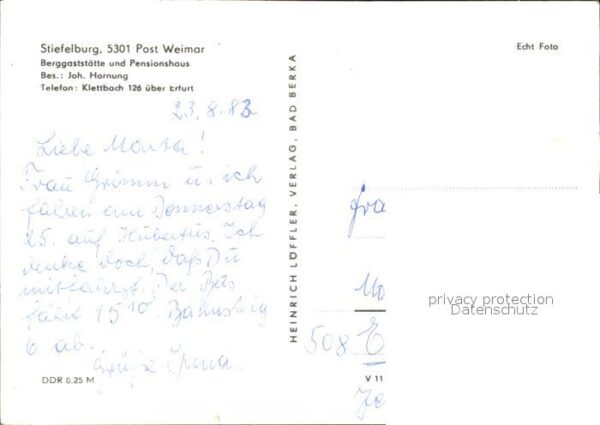 Stiefelburg, 5301 Post Weimar
Berggaststätte und Pensionshaus
Bes.: Joh. Hornung
Telefon: Klettbach 126 über Erfurt
23.8.83
Liebe Marta!
Frau Grimm u. ich
fahren am Donnerstag
25. auf Hubertus. Ich
denke doch, daß Du
mitfährst. Der Bus
fährt 15¹⁰ Bahnstg
6 ab.
Grüße Irma.
DDR 0,25 M
HEINRICH LÖFFLER, VERLAG, BAD BERKA
Echt Foto
Fra
508 E
V 11
privacy protection
Datenschutz